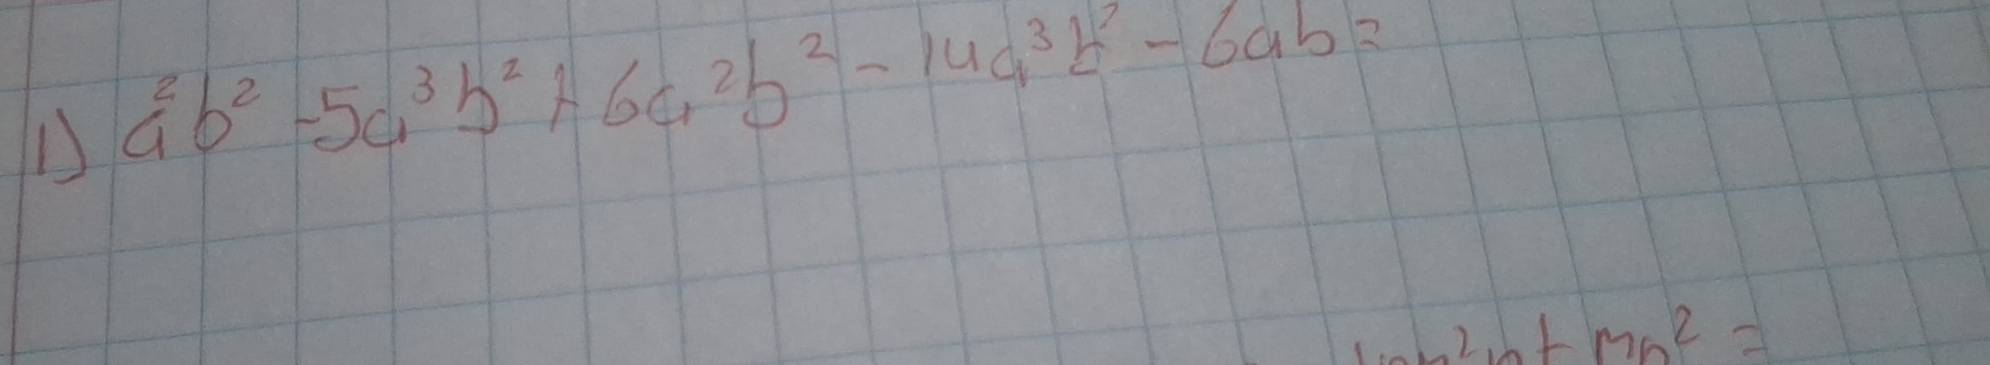 1) a²b² -5a³b² + 6a²b² - 14a³b² - 6ab =
m²n + mn² =